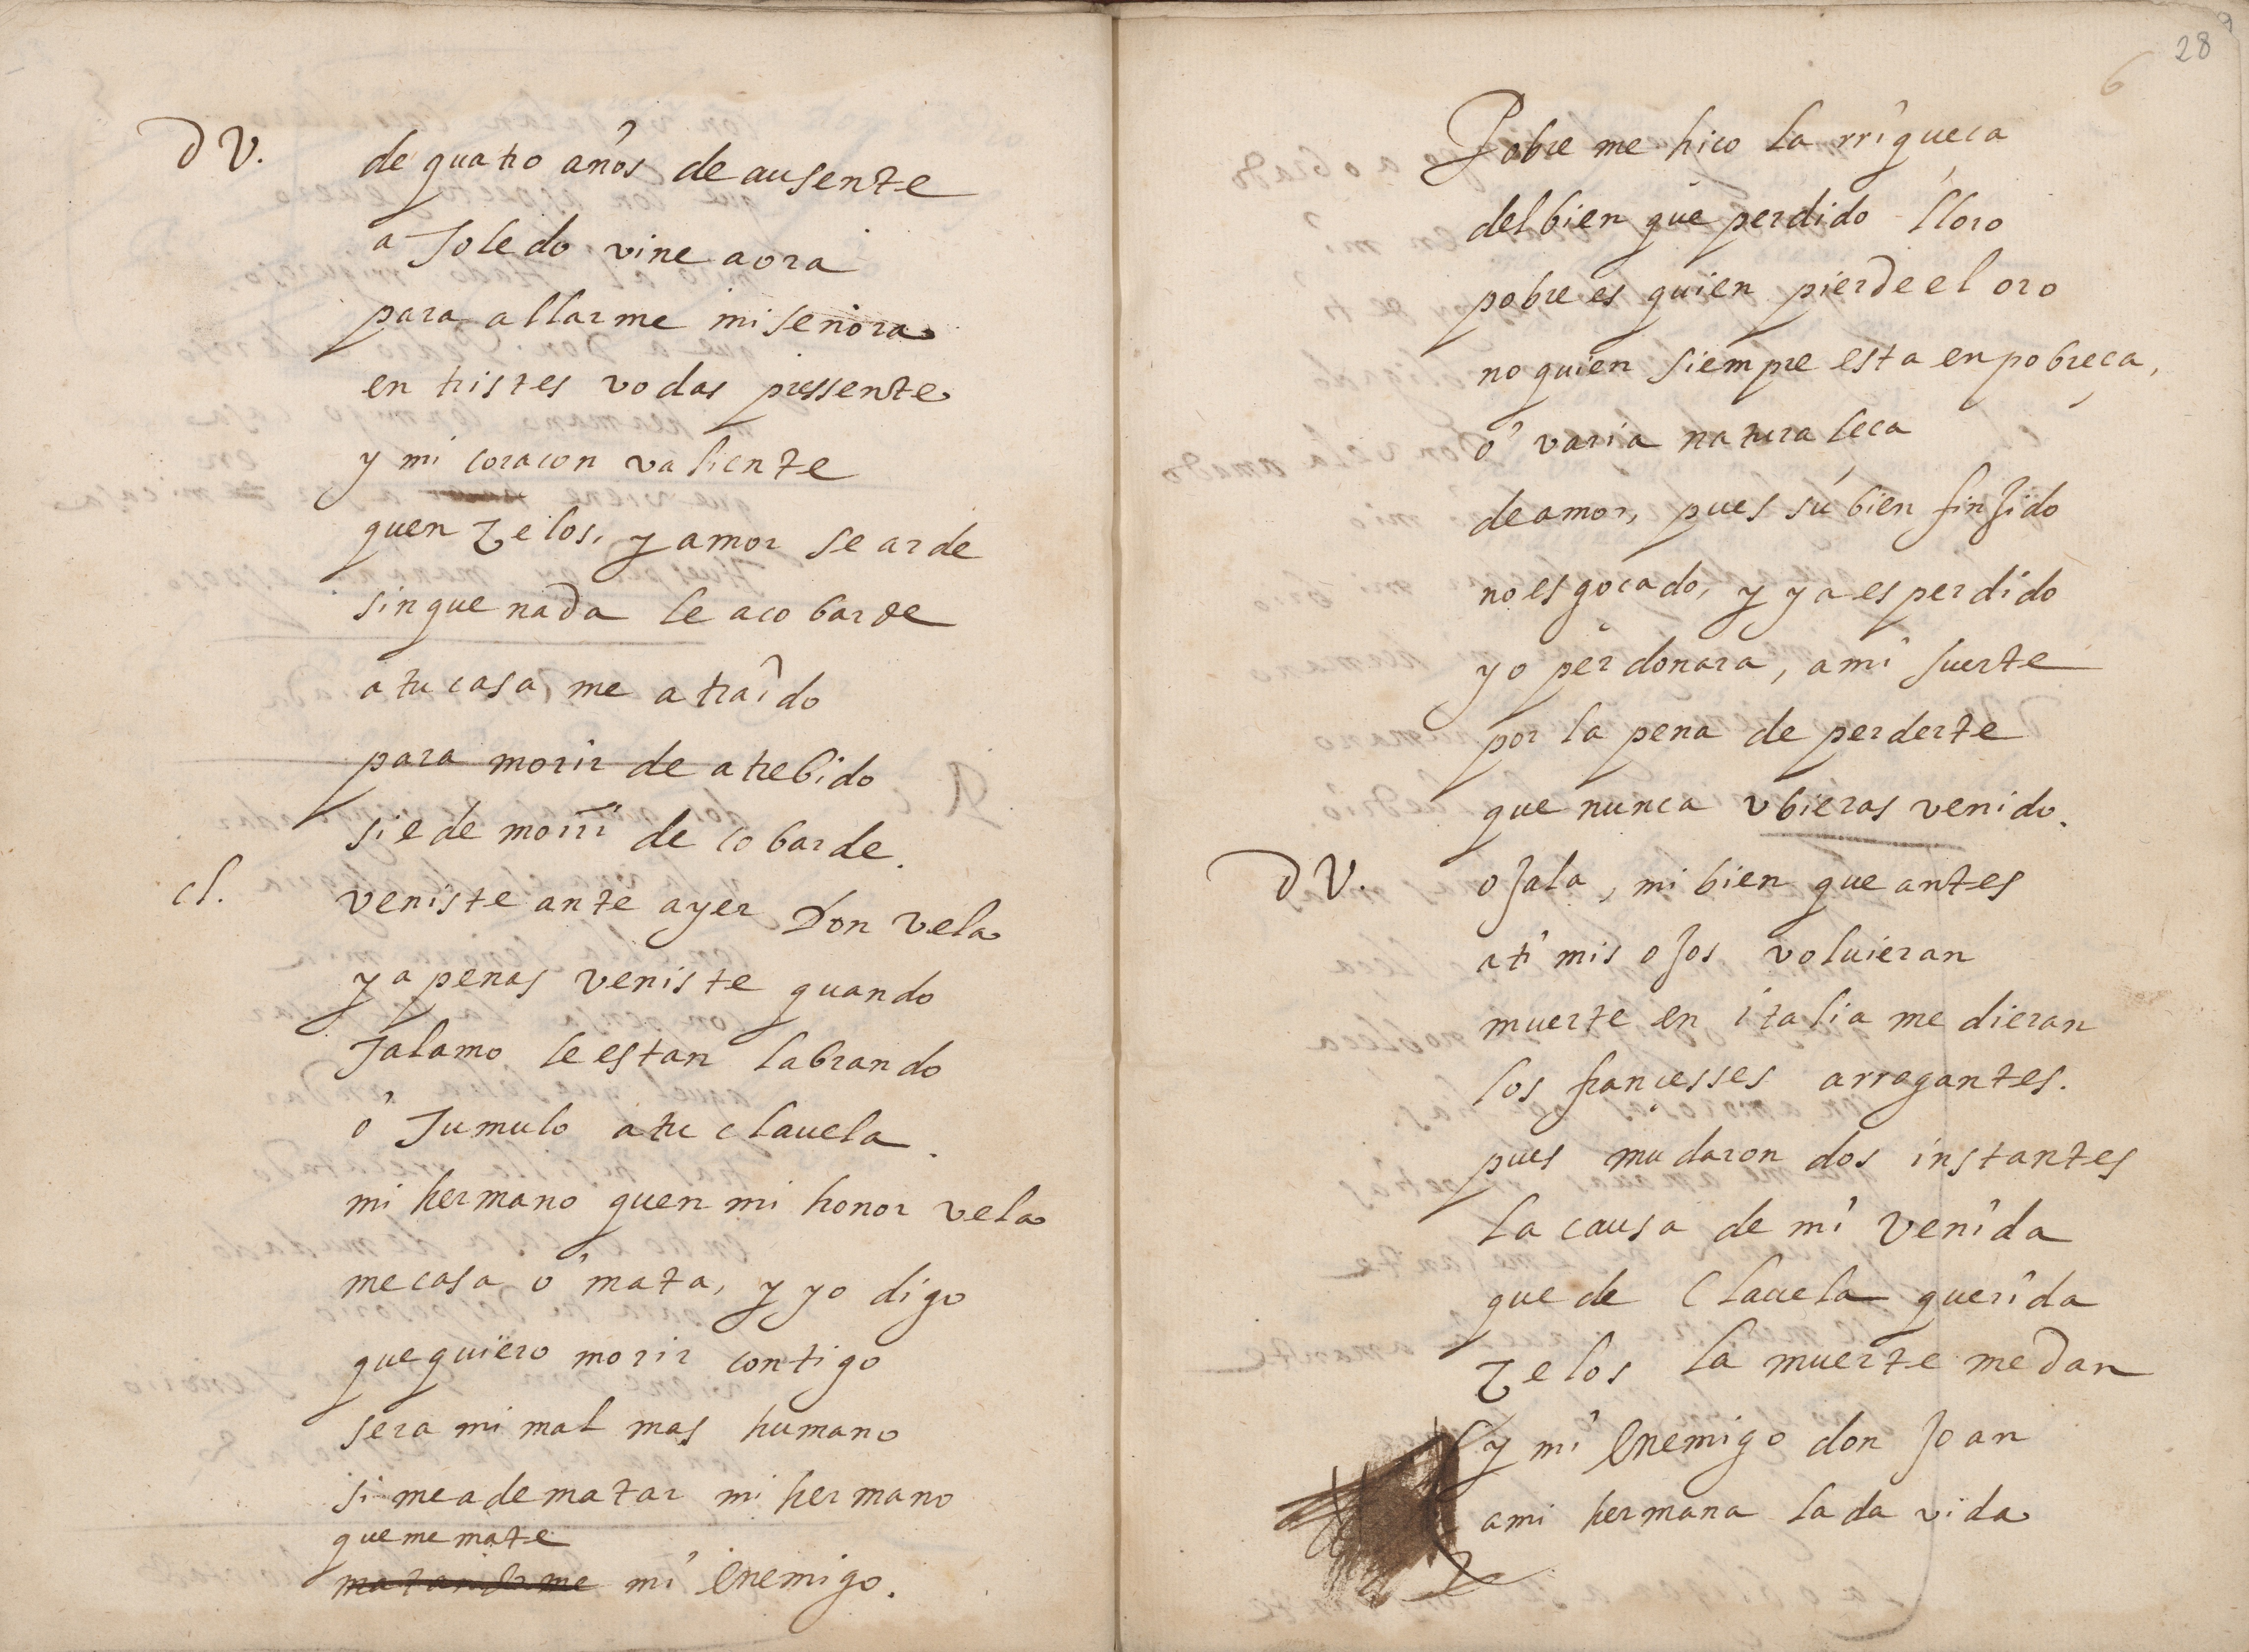 D V. de quatro años de ausente
a Toledo vine aora
para allarme mi señora
en tristes vodas pressente
y mi coracon valiente
quen zelos, y amor se arde
sin que nada le acobarde
a tu casa me a traido
para morir de atrebido
si e de morir de cobarde.
cl. veniste ante ayer Don Vela
y a penas veniste quando
Talamo le estan labrando
o Tumulo a tu clauela.
mi hermano quen mi honor vela
me casa o mata, y yo digo
que quiero morir contigo
sera mi mal mas humano
si me a de matar mi hermano
que me mate
matandome mi enemigo.
28
6
Pobre me hico la rriqueca
del bien que perdido lloro
pobre es quien pierde el oro
no quien siempre esta en pobreca,
o varia naturaleca
de amor, pues su bien finjido
no es gocado, y ya es perdido
yo perdonara, a mi suerte
por la pena de perderte
que nunca vbieras venido.
D V. ojala, mi bien que antes
a ti mis ojos voluieran
muerte en italia me dieran
los francesses arrogantes.
pues mudaron dos instantes
la causa de mi venida
que de Clauela querida
zelos la muerte me dan
y mi enemigo don Joan
a mi hermana la da vida